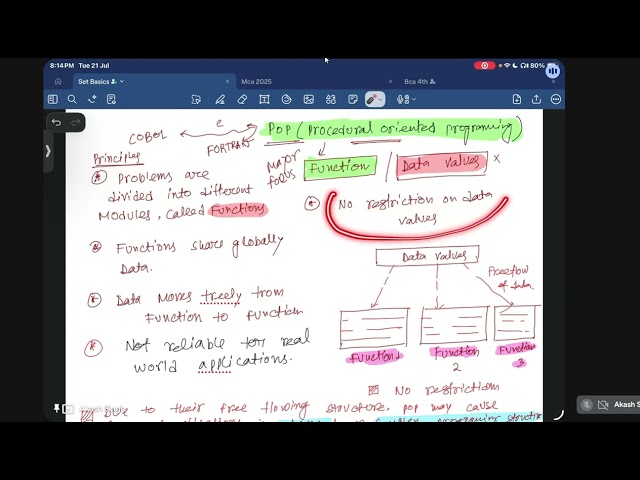 8:14PM Tue 21 Jul
80%
Set Basics
Mca 2025
Bca 4th
COBOL
C
FORTRAN
POP (Procedural oriented programing)
Principles
MAJOR FOCUS
Function / Data values ×
Problems are
divided into different
Modules, called Functions
No restriction on data
values
Functions share globally
Data.
Data values
Freeflow
of data.
Data moves freely from
Function to function
Not reliable for real
world applications.
Function 1
Function
2
Function
3
No restriction
Due to their free flowing structure, pop may cause
programing structure
Akash S